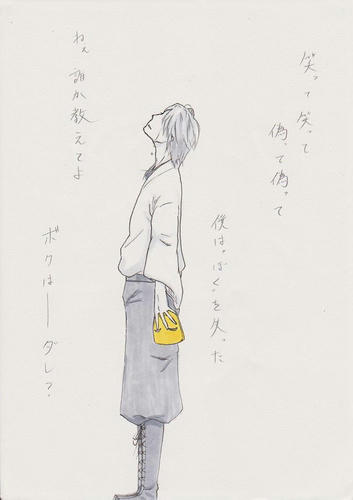 笑って笑って
偽って偽って
僕は“ぼく”を失った
ねぇ 誰か教えてよ
ボクは――ダレ?